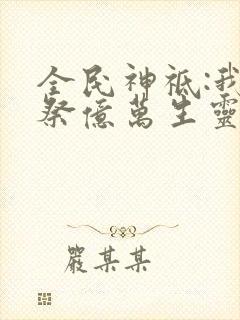 全民神祗:我
祭億萬生靈
嚴某某